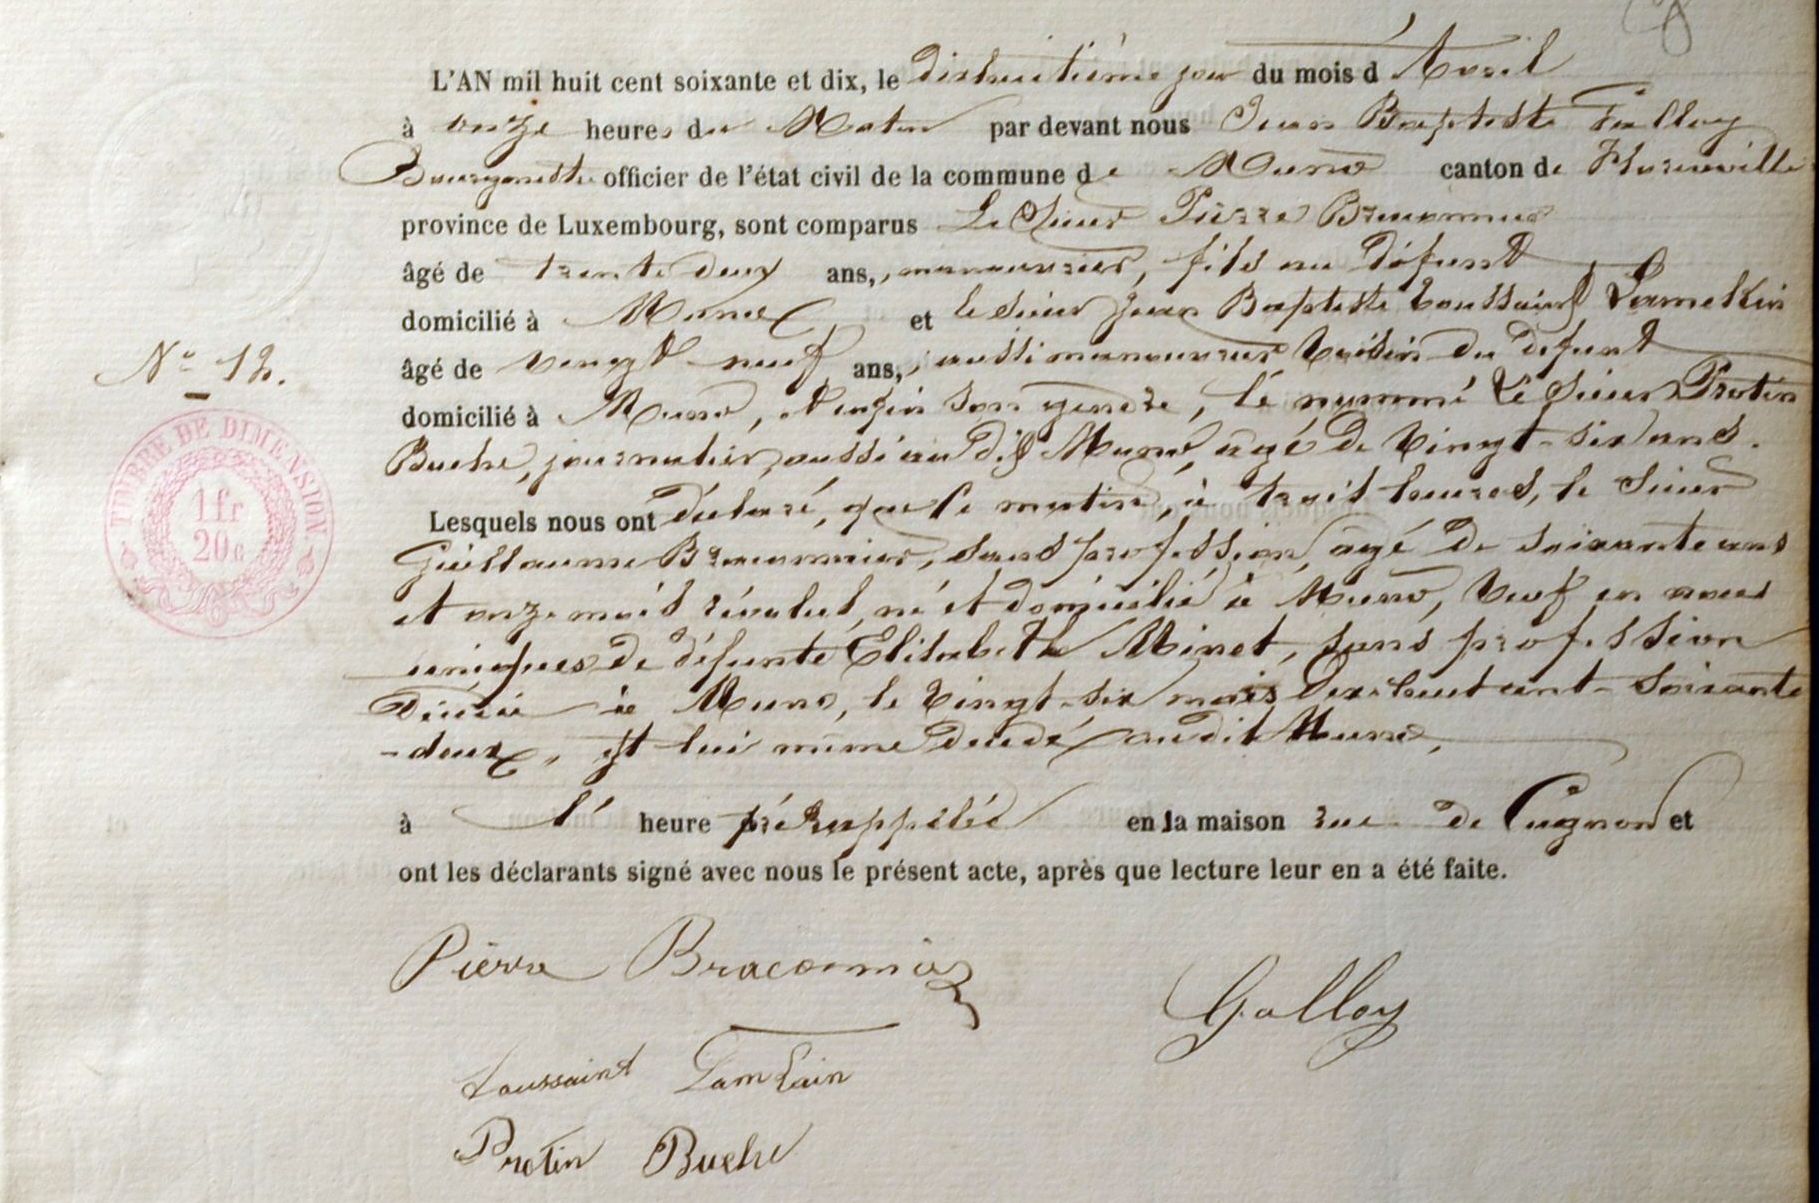 L'AN mil huit cent soixante et dix, le dixhuitième jour du mois d'Avril
à onze heures du Matin par devant nous Jean Baptiste Galloy
Bourgmestre officier de l'état civil de la commune de Muno canton de Florenville
province de Luxembourg, sont comparus Le Sieur Pierre Braconnier
âgé de trente deux ans, manouvrier, fils au défunt
domicilié à Muno et le sieur Jean Baptiste Toussaint
âgé de vingt-neuf ans, aussi manouvrier voisin du défunt
domicilié à Muno, et enfin son gendre, le nommé le Sieur Protin
Buche, journalier, aussi au dit Muno, agé de vingt-six ans.
Lesquels nous ont déclaré, que ce matin, à trois heures, le Sieur
Guillaume Braconnier, sans profession, agé de soixante ans
et onze mois révolus, né et domicilié à Muno, Veuf en noces
uniques de défunte Elisabeth Minet, sans profession
décédée à Muno, le vingt-six mars dix-huit cent-soixante
-deux, est lui même décédé audit Muno,
à l' heure prérappelée en la maison rue de Cugnon et
ont les déclarants signé avec nous le présent acte, après que lecture leur en a été faite.
N° 12.
TIMBRE DE DIMENSION
1 fr
20 c
Pierre Braconnier
Galloy
Toussaint Lamkain
Protin Buche